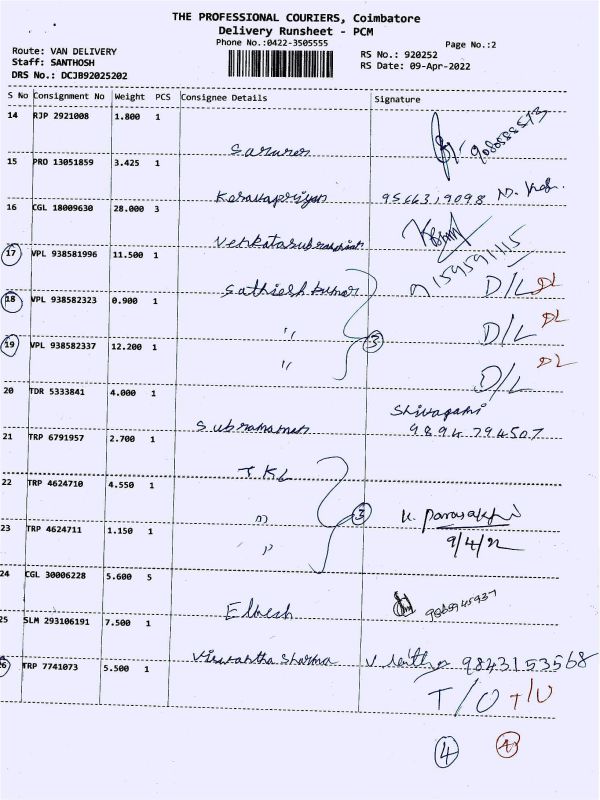 THE PROFESSIONAL COURIERS, Coimbatore
Delivery Runsheet - PCM
Phone No.:0422-3505555
Page No.:2
Route: VAN DELIVERY
Staff: SANTHOSH
DRS No.: DCJB92025202
RS No.: 920252
RS Date: 09-Apr-2022
S No Consignment No Weight PCS Consignee Details Signature
14 RJP 2921008 1.800 1
15 PRO 13051859 3.425 1
16 CGL 18009630 28.000 3 9566319098
Venkatasubramanian
17 VPL 938581996 11.500 1
Sathiesh kumar D/L DL
18 VPL 938582323 0.900 1
" D/L DL
19 VPL 938582337 12.200 1 3
" D/L DL
20 TDR 5333841 4.000 1
Shivagami
Subramanian 9894794507
21 TRP 6791957 2.700 1
TKL
22 TRP 4624710 4.550 1
" 3 K. 
23 TRP 4624711 1.150 1
" 9/4/22
24 CGL 30006228 5.600 5
25 SLM 293106191 7.500 1
Sharma 9843153568
26 TRP 7741073 5.500 1
T/O T/O
4